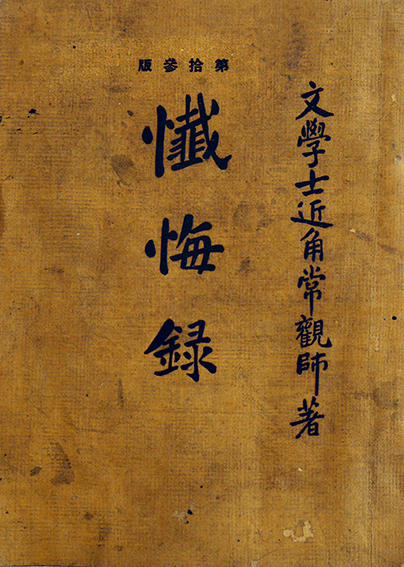 第拾參版
懺悔録
文學士近角常觀師著